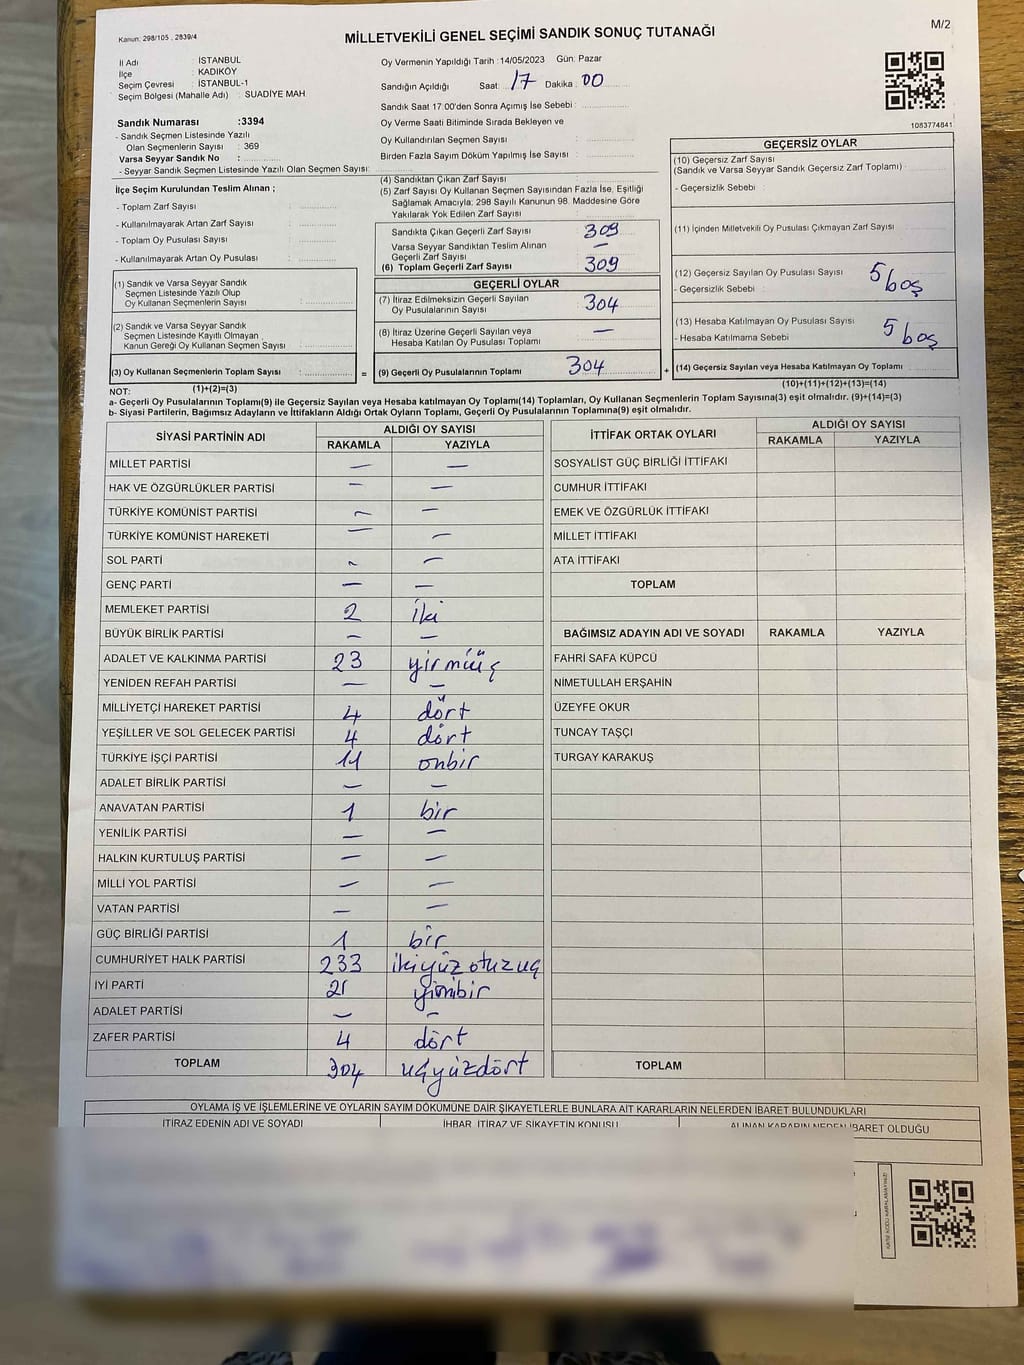 Kanun: 298/105 , 2839/4
MİLLETVEKİLİ GENEL SEÇİMİ SANDIK SONUÇ TUTANAĞI
M/2
İl Adı : İSTANBUL
İlçe : KADIKÖY
Seçim Çevresi : İSTANBUL-1
Seçim Bölgesi (Mahalle Adı) : SUADİYE MAH
Sandık Numarası :3394
- Sandık Seçmen Listesinde Yazılı
Olan Seçmenlerin Sayısı : 369
Varsa Seyyar Sandık No :
- Seyyar Sandık Seçmen Listesinde Yazılı Olan Seçmen Sayısı:
İlçe Seçim Kurulundan Teslim Alınan ;
- Toplam Zarf Sayısı :
- Kullanılmayarak Artan Zarf Sayısı :
- Toplam Oy Pusulası Sayısı :
- Kullanılmayarak Artan Oy Pusulası :
(1) Sandık ve Varsa Seyyar Sandık
Seçmen Listesinde Yazılı Olup
Oy Kullanan Seçmenlerin Sayısı :
(2) Sandık ve Varsa Seyyar Sandık
Seçmen Listesinde Kayıtlı Olmayan
Kanun Gereği Oy Kullanan Seçmen Sayısı :
(3) Oy Kullanan Seçmenlerin Toplam Sayısı : =
Oy Vermenin Yapıldığı Tarih :14/05/2023 Gün: Pazar
Sandığın Açıldığı Saat: 17 Dakika : 00
Sandık Saat 17:00'den Sonra Açımış İse Sebebi :
Oy Verme Saati Bitiminde Sırada Bekleyen ve
Oy Kullandırılan Seçmen Sayısı :
Birden Fazla Sayım Döküm Yapılmış İse Sayısı :
(4) Sandıktan Çıkan Zarf Sayısı :
(5) Zarf Sayısı Oy Kullanan Seçmen Sayısından Fazla İse, Eşitliği
Sağlamak Amacıyla; 298 Sayılı Kanunun 98. Maddesine Göre
Yakılarak Yok Edilen Zarf Sayısı :
Sandıkta Çıkan Geçerli Zarf Sayısı : 309
Varsa Seyyar Sandıktan Teslim Alınan
Geçerli Zarf Sayısı : —
(6) Toplam Geçerli Zarf Sayısı : 309
GEÇERLİ OYLAR
(7) İtiraz Edilmeksizin Geçerli Sayılan
Oy Pusulalarının Sayısı : 304
(8) İtiraz Üzerine Geçerli Sayılan veya
Hesaba Katılan Oy Pusulası Toplamı : —
(9) Geçerli Oy Pusulalarının Toplamı : 304 +
1083774841
GEÇERSİZ OYLAR
(10) Geçersiz Zarf Sayısı
(Sandık ve Varsa Seyyar Sandık Geçersiz Zarf Toplamı) :
- Geçersizlik Sebebi :
(11) İçinden Milletvekili Oy Pusulası Çıkmayan Zarf Sayısı :
(12) Geçersiz Sayılan Oy Pusulası Sayısı : 5 boş
- Geçersizlik Sebebi :
(13) Hesaba Katılmayan Oy Pusulası Sayısı : 5 boş
- Hesaba Katılmama Sebebi :
(14) Geçersiz Sayılan veya Hesaba Katılmayan Oy Toplamı :
NOT: (1)+(2)=(3) (10)+(11)+(12)+(13)=(14)
a- Geçerli Oy Pusulalarının Toplamı(9) ile Geçersiz Sayılan veya Hesaba katılmayan Oy Toplamı(14) Toplamları, Oy Kullanan Seçmenlerin Toplam Sayısına(3) eşit olmalıdır. (9)+(14)=(3)
b- Siyasi Partilerin, Bağımsız Adayların ve İttifakların Aldığı Ortak Oyların Toplamı, Geçerli Oy Pusulalarının Toplamına(9) eşit olmalıdır.
SİYASİ PARTİNİN ADI ALDIĞI OY SAYISI
RAKAMLA YAZIYLA
MİLLET PARTİSİ — —
HAK VE ÖZGÜRLÜKLER PARTİSİ — —
TÜRKİYE KOMÜNİST PARTİSİ — —
TÜRKİYE KOMÜNİST HAREKETİ — —
SOL PARTİ — —
GENÇ PARTİ — —
MEMLEKET PARTİSİ 2 iki
BÜYÜK BİRLİK PARTİSİ — —
ADALET VE KALKINMA PARTİSİ 23 yirmiüç
YENİDEN REFAH PARTİSİ — —
MİLLİYETÇİ HAREKET PARTİSİ 4 dört
YEŞİLLER VE SOL GELECEK PARTİSİ 4 dört
TÜRKİYE İŞÇİ PARTİSİ 11 onbir
ADALET BİRLİK PARTİSİ — —
ANAVATAN PARTİSİ 1 bir
YENİLİK PARTİSİ — —
HALKIN KURTULUŞ PARTİSİ — —
MİLLİ YOL PARTİSİ — —
VATAN PARTİSİ — —
GÜÇ BİRLİĞİ PARTİSİ 1 bir
CUMHURİYET HALK PARTİSİ 233 ikiyüz otuzuç
İYİ PARTİ 21 yirmibir
ADALET PARTİSİ — —
ZAFER PARTİSİ 4 dört
TOPLAM 304 uçyüzdört
İTTİFAK ORTAK OYLARI ALDIĞI OY SAYISI
RAKAMLA YAZIYLA
SOSYALİST GÜÇ BİRLİĞİ İTTİFAKI
CUMHUR İTTİFAKI
EMEK VE ÖZGÜRLÜK İTTİFAKI
MİLLET İTTİFAKI
ATA İTTİFAKI
TOPLAM
BAĞIMSIZ ADAYIN ADI VE SOYADI RAKAMLA YAZIYLA
FAHRİ SAFA KÜPCÜ
NİMETULLAH ERŞAHİN
ÜZEYFE OKUR
TUNCAY TAŞÇI
TURGAY KARAKUŞ
TOPLAM
OYLAMA İŞ VE İŞLEMLERİNE VE OYLARIN SAYIM DÖKÜMÜNE DAİR ŞİKAYETLERLE BUNLARA AİT KARARLARIN NELERDEN İBARET BULUNDUKLARI
İTİRAZ EDENİN ADI VE SOYADI İHBAR, İTİRAZ VE ŞİKAYETİN KONUSU ALINAN KARARIN NEDEN İBARET OLDUĞU